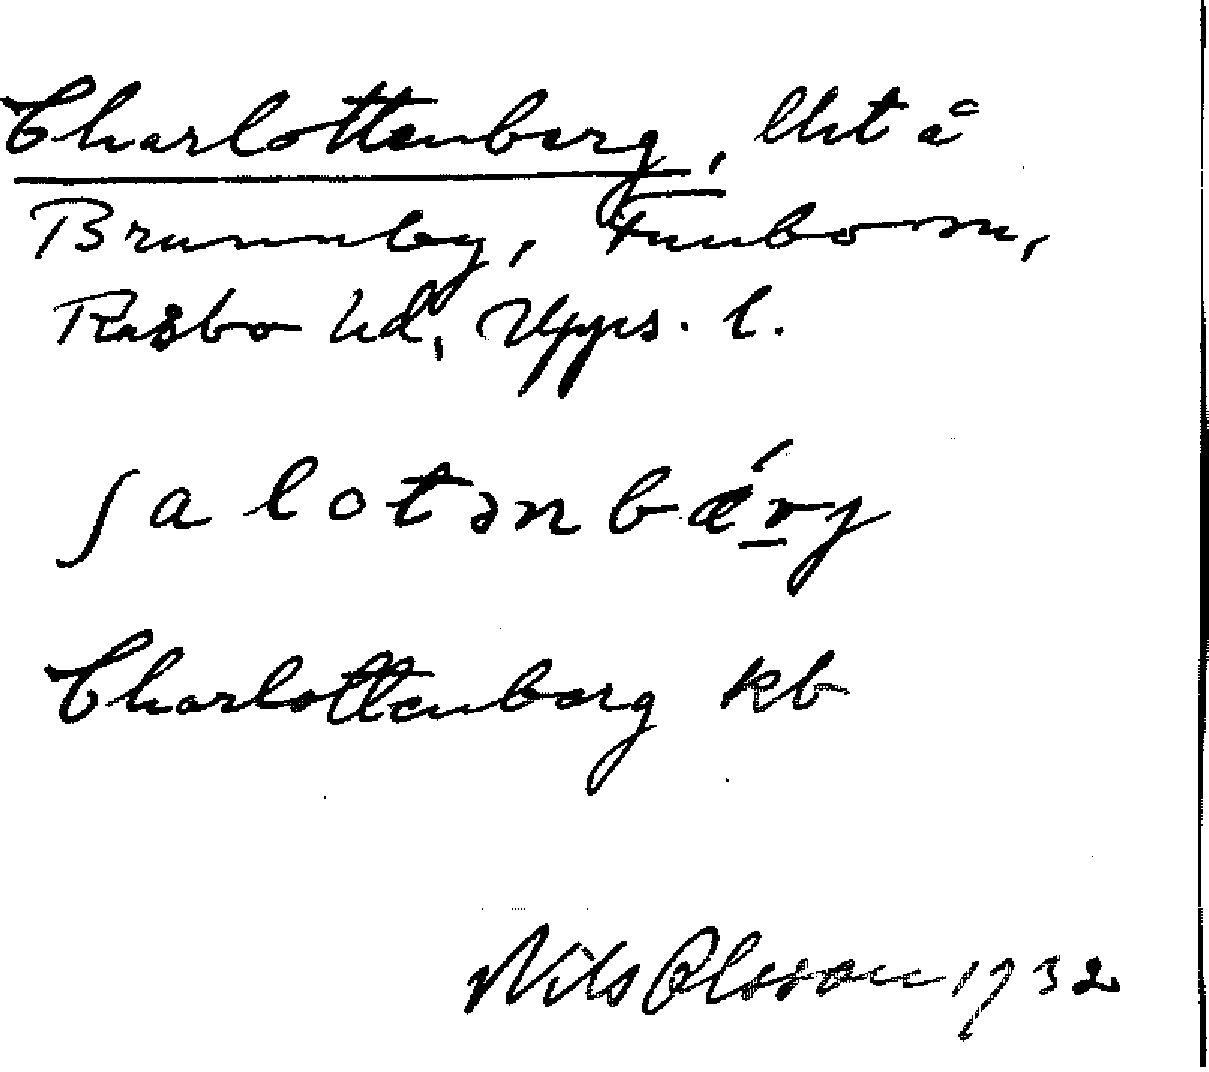 Charlottenberg, lht å
Brunnby, Funbo sn,
Rasbo hd, Upps. l.
ʃalotənbærj
Charlottenberg kb
Nils Olsson 1932